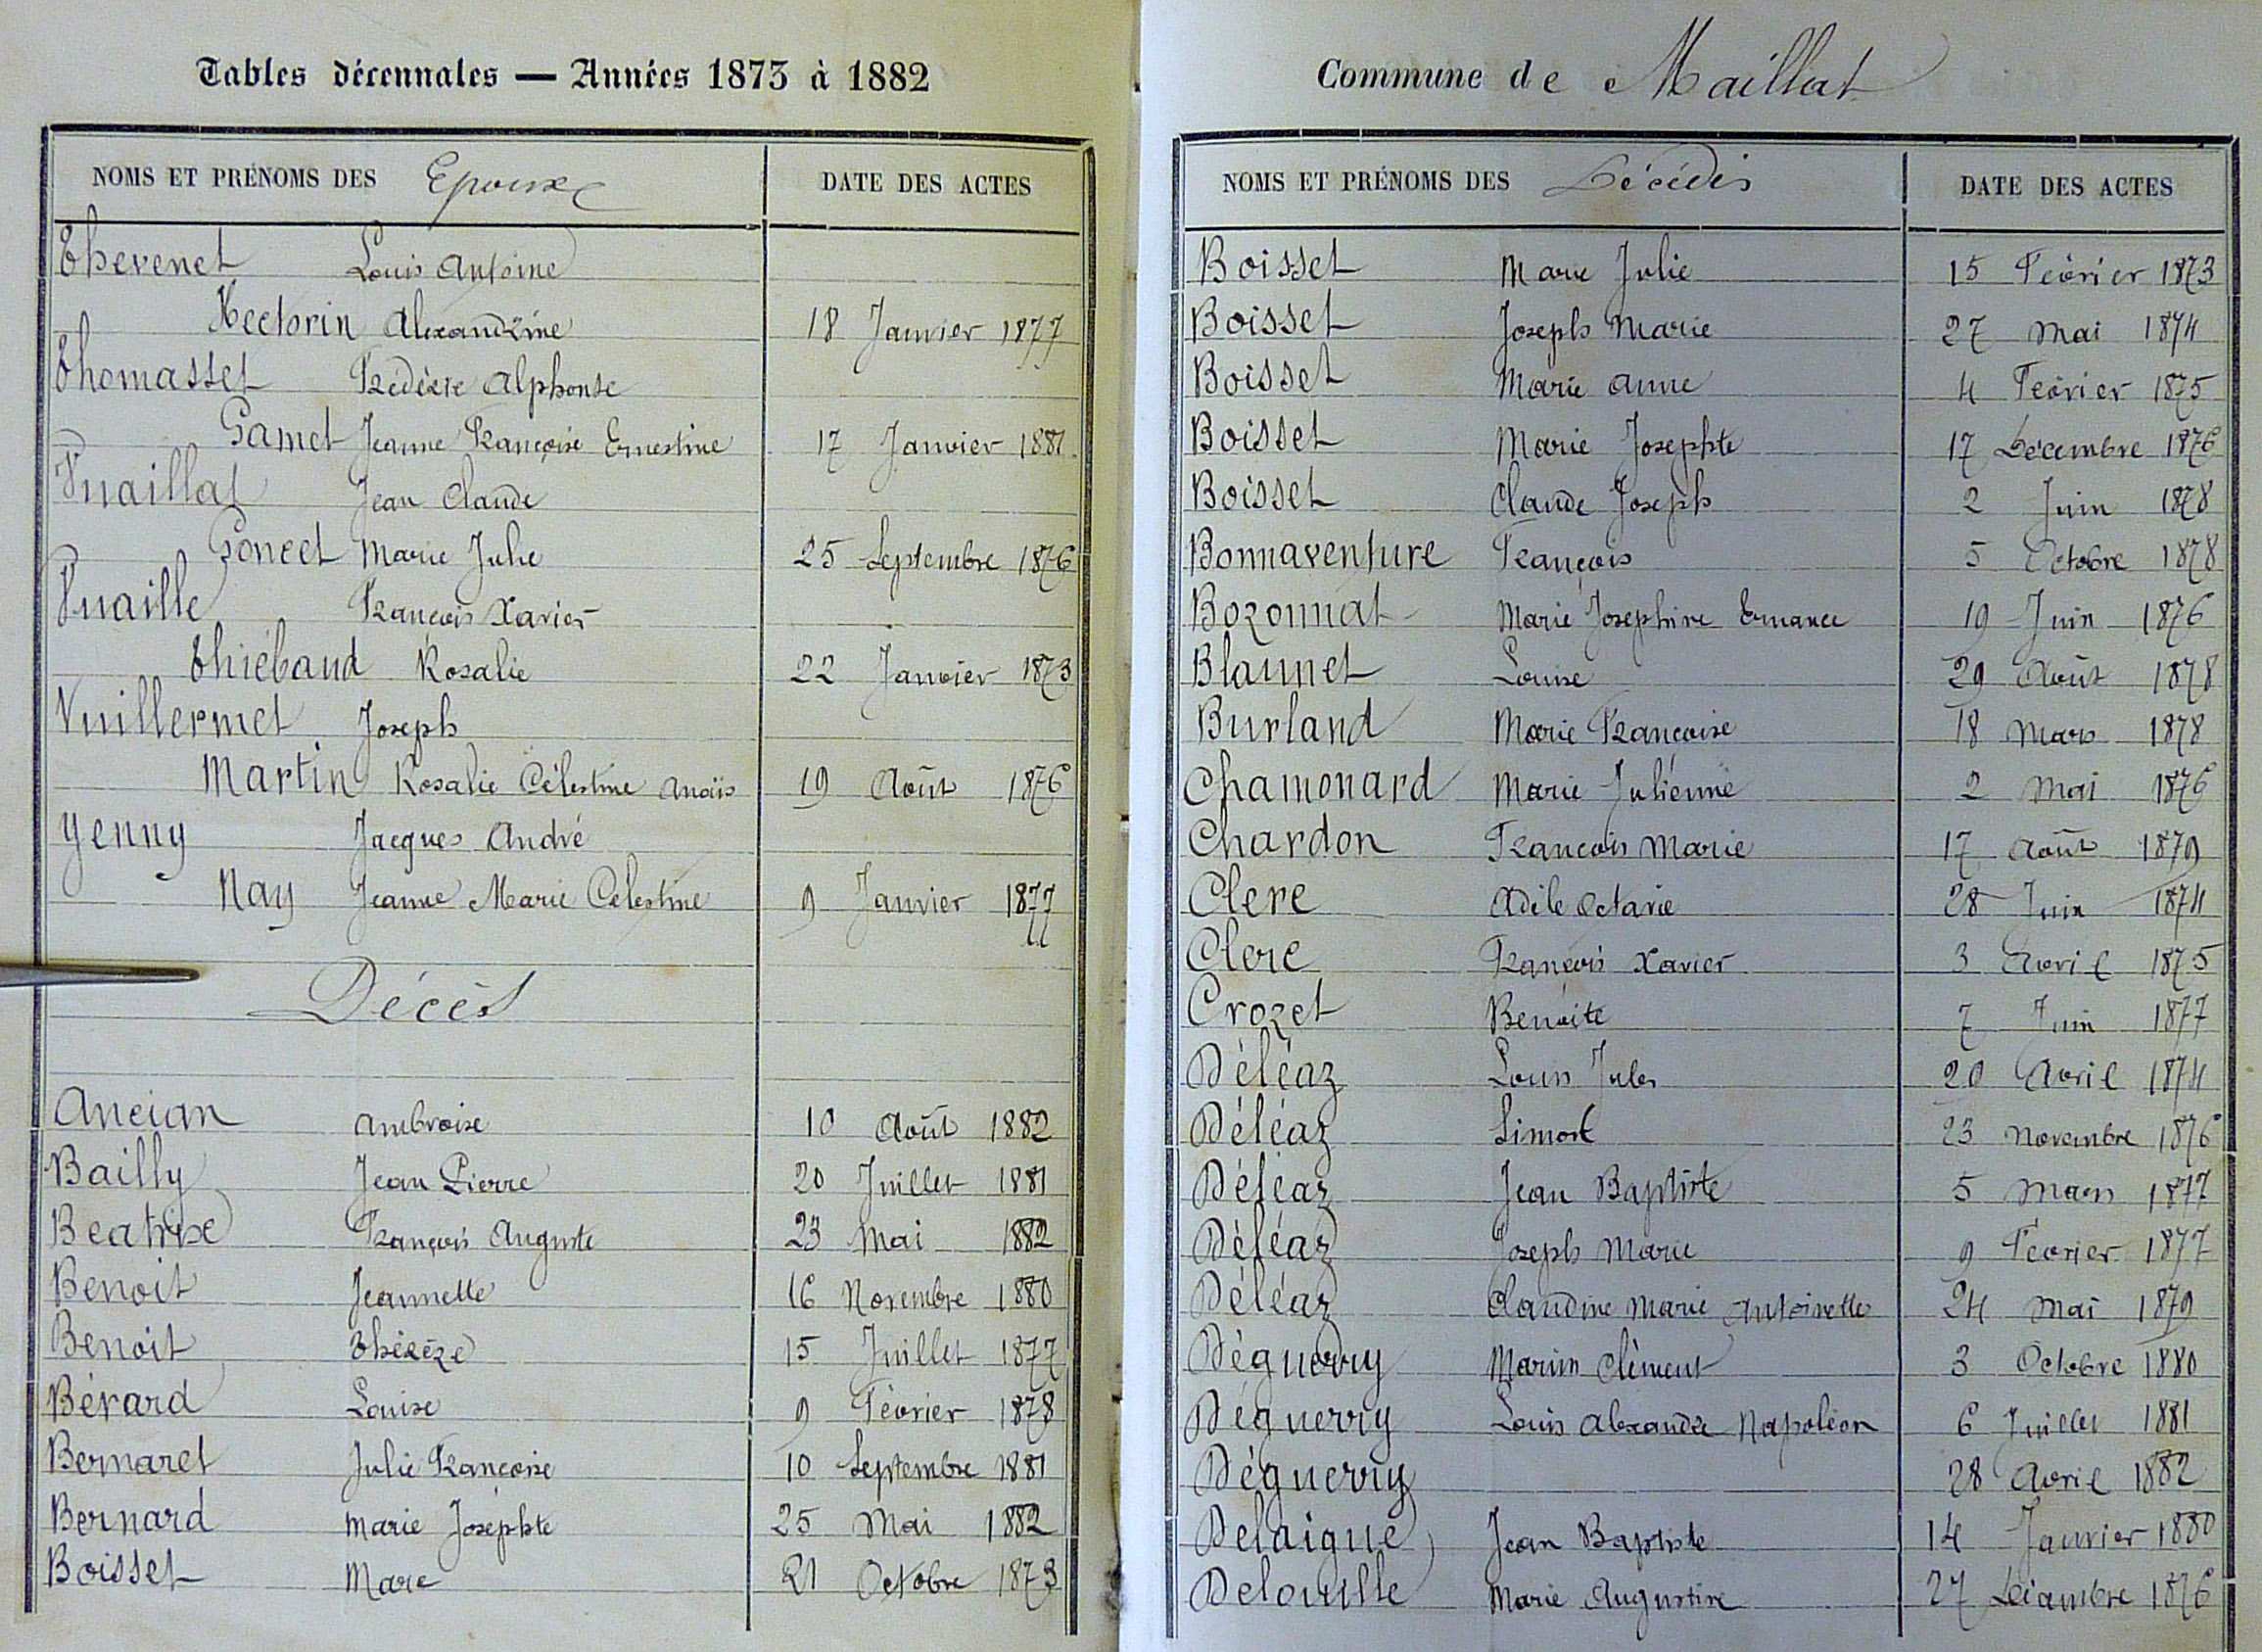 Tables décennales — Années 1873 à 1882
NOMS ET PRÉNOMS DES Epoux DATE DES ACTES
Thevenet Louis Antoine
Hectorin Alexandrine 18 Janvier 1877
Thomasset Frédéric Alphonse
Gamet Jeanne Françoise Ernestine 17 Janvier 1881
Vuaillat Jean Claude
Poncet Marie Julie 25 Septembre 1876
Vuaille François Xavier
Thiébaud Rosalie 22 Janvier 1873
Vuillermet Joseph
Martin Rosalie Célestine Anaïs 19 Août 1876
Yenny Jacques André
Nay Jeanne Marie Célestine 9 Janvier 1877
Décès
Ancian Ambroise 10 Août 1882
Bailly Jean Pierre 20 Juillet 1881
Beatrix François Auguste 23 Mai 1882
Benoit Jeannette 16 Novembre 1880
Benoit Thérèze 15 Juillet 1877
Bérard Louise 9 Février 1878
Bernaret Julie Françoise 10 Septembre 1881
Bernard Marie Josephte 25 Mai 1882
Boisset Marc 21 Octobre 1873
Commune de Maillat
NOMS ET PRÉNOMS DES Décédés DATE DES ACTES
Boisset Marie Julie 15 Février 1873
Boisset Joseph Marie 27 Mai 1874
Boisset Marie Anne 4 Février 1875
Boisset Marie Josephte 17 Décembre 1876
Boisset Claude Joseph 2 Juin 1878
Bonnaventure François 5 Octobre 1878
Bozonnat Marie Josephine Ernance 19 Juin 1876
Blaunet Louise 29 Août 1878
Burland Marie Françoise 18 Mars 1878
Chamonard Marie Julienne 2 Mai 1876
Chardon François Marie 17 Août 1879
Clerc Adèle Octavie 28 Juin 1874
Clerc François Xavier 3 Avril 1875
Crozet Benoîte 7 Juin 1877
Déléaz Louis Jules 20 Avril 1874
Déléaz Simon 23 Novembre 1876
Déléaz Jean Baptiste 5 Mars 1877
Déléaz Joseph Marie 9 Février 1877
Déléaz Claudine Marie Antoinette 24 Mai 1879
Déguerry Marius Clément 3 Octobre 1880
Déguerry Louis Alexandre Napoléon 6 Juillet 1881
Déguerry 28 Avril 1882
Delaigue Jean Baptiste 14 Janvier 1880
Delouille Marie Augustine 27 Décembre 1876